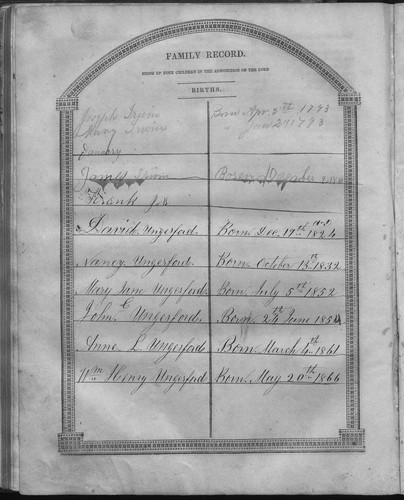 FAMILY RECORD.
BRING UP YOUR CHILDREN IN THE ADMONITION OF THE LORD
BIRTHS.
Joseph Irvin Born Apr. 5th 1793
Mary Irvin " Jan 27 1793
January
James Irvin Born
Frank
David Ungerford Born Dec. 17th 1824
Nancy Ungerford Born October 13th 1832
Mary Jane Ungerford Born July 5th 1852
John E Ungerford Born 24th June 1854
Anne L Ungerford Born March 4th 1861
Wm Henry Ungerford Born May 20th 1866